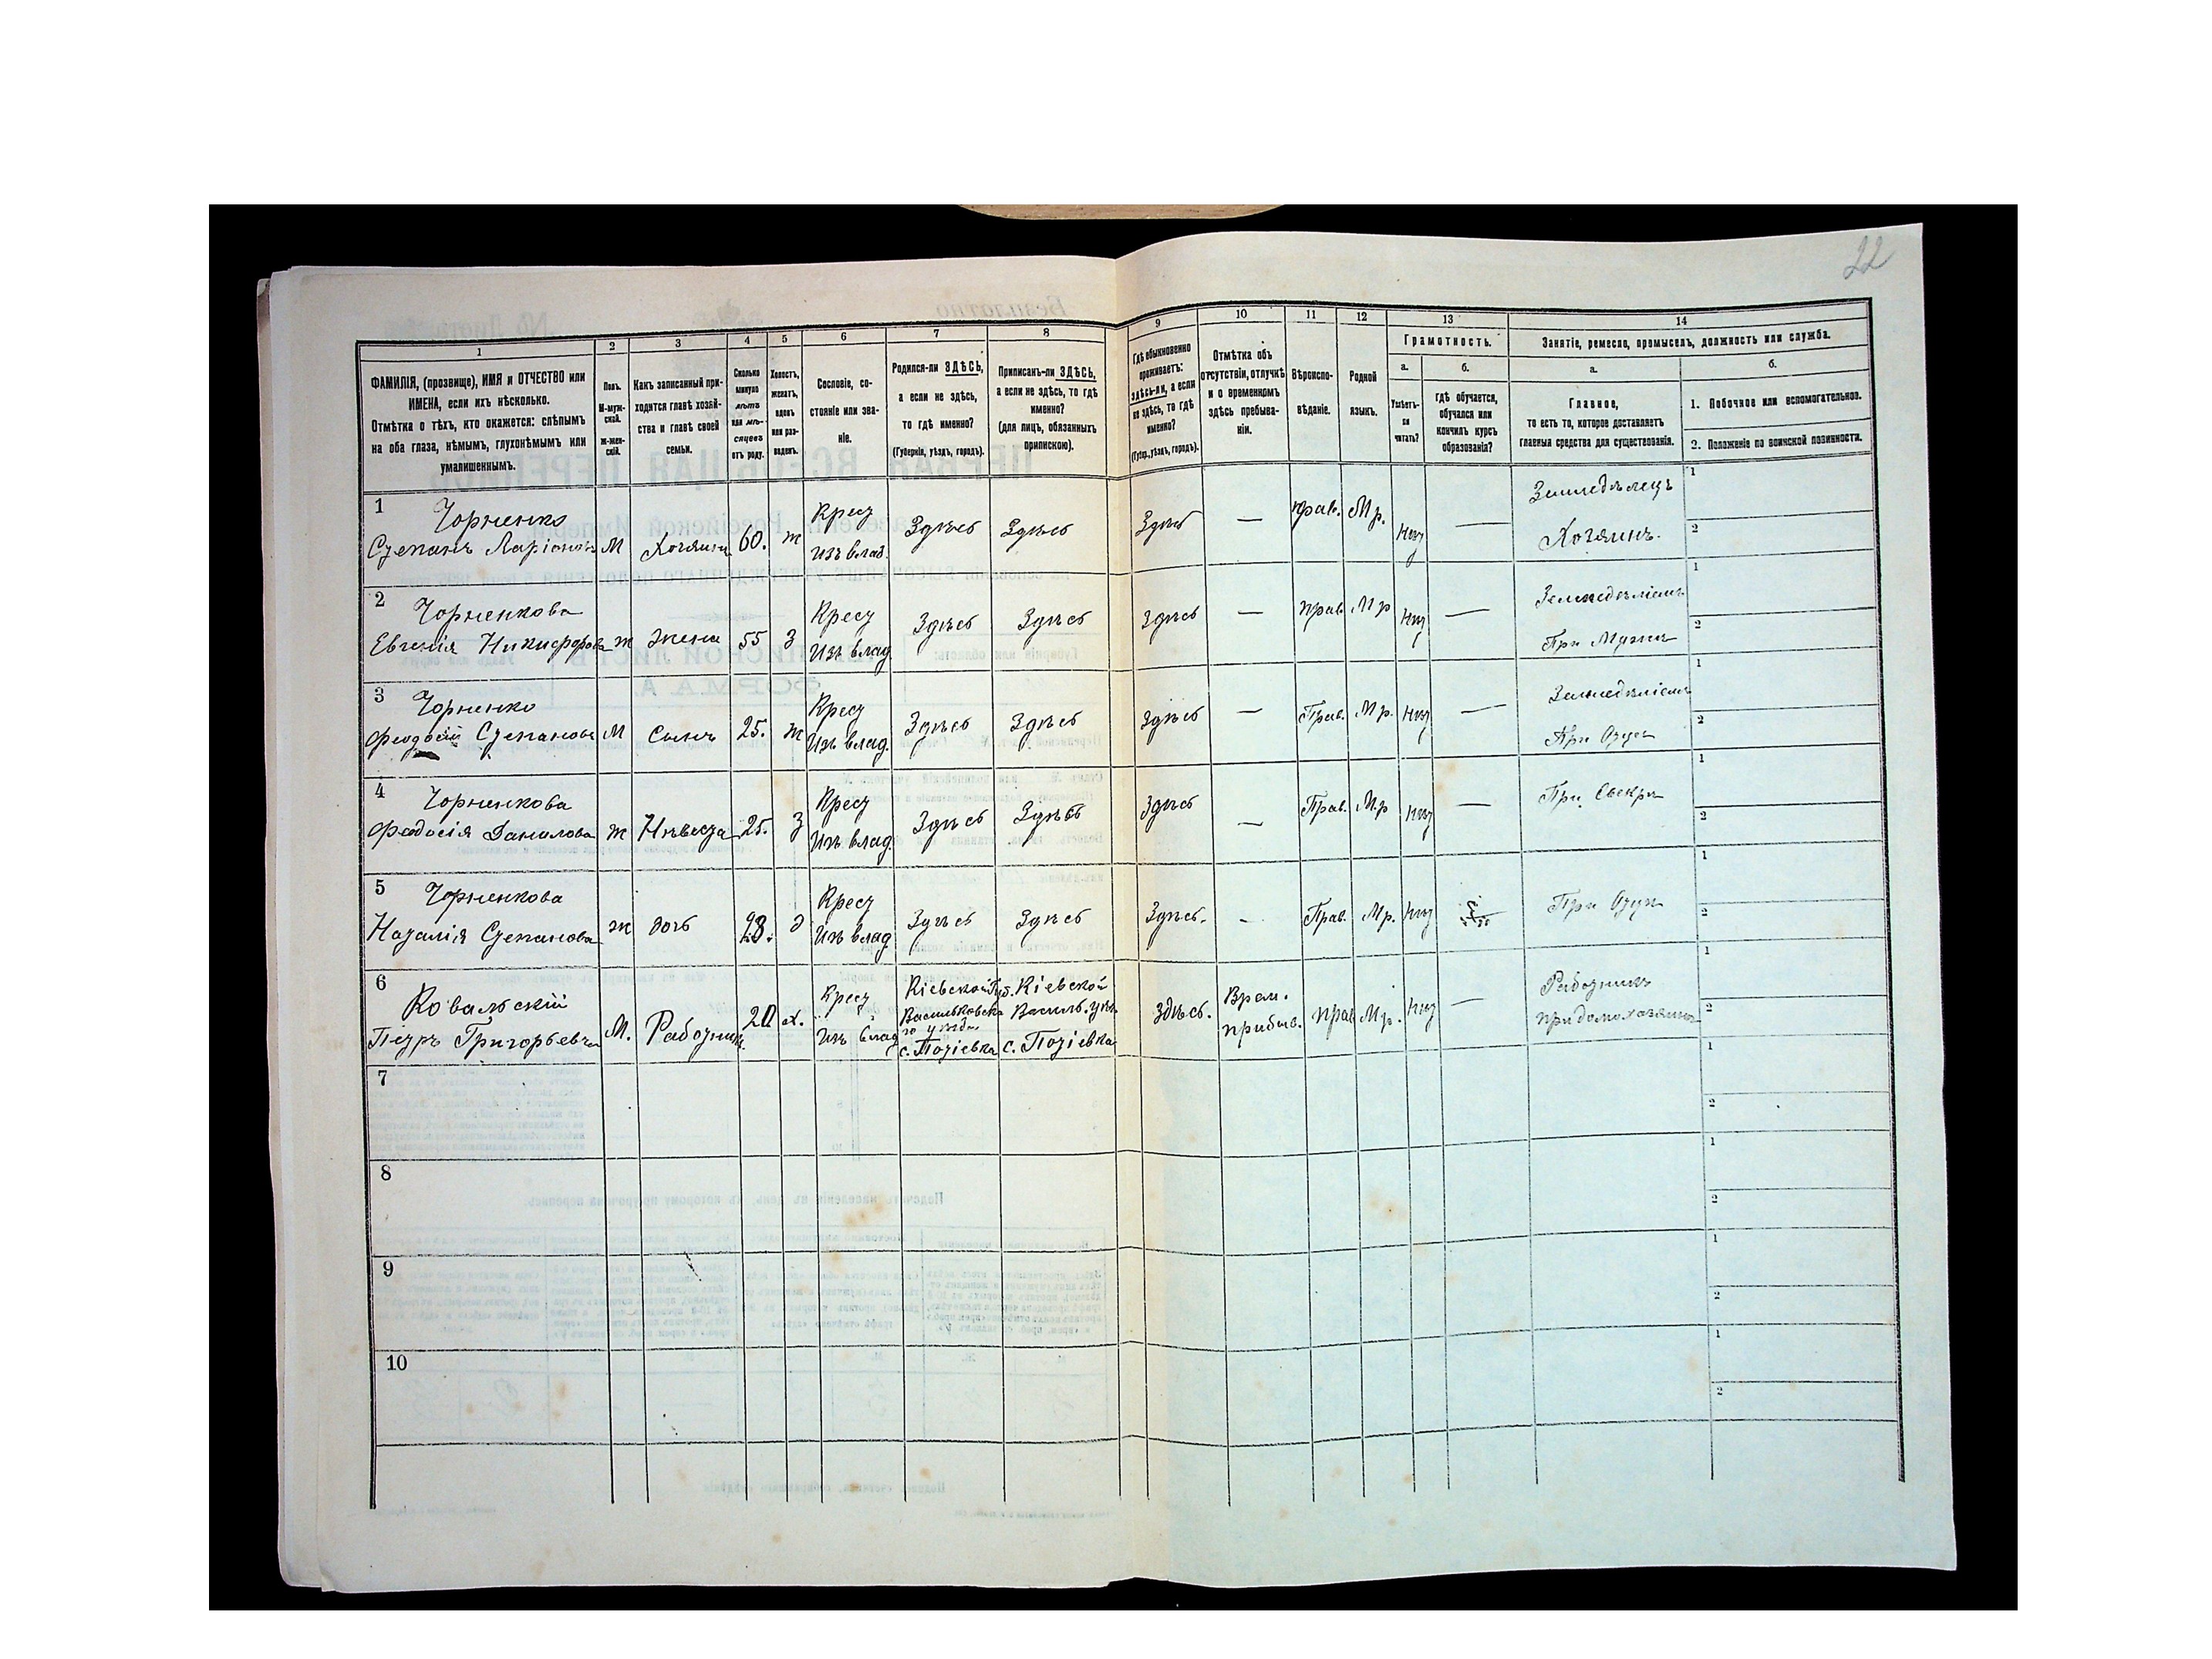 22
1
2
3
4
5
6
7
8
9
10
11
12
13
14
ФАМИЛІЯ, (прозвище), ИМЯ и ОТЧЕСТВО или
ИМЕНА, если ихъ нѣсколько.
Отмѣтка о тѣхъ, кто окажется: слѣпымъ
на оба глаза, нѣмымъ, глухонѣмымъ или
умалишеннымъ.
Полъ.
М-муж-
ской.
Ж-жен-
скій.
Какъ записанный при-
ходится главѣ хозяй-
ства и главѣ своей
семьи.
Сколько
минуло
лѣтъ
или мѣ-
сяцевъ
отъ роду.
Холостъ,
женатъ,
вдовъ
или раз-
веденъ.
Сословіе, со-
стояніе или зва-
ніе.
Родился-ли ЗДѢСЬ,
а если не здѣсь,
то гдѣ именно?
(Губернія, уѣздъ, городъ).
Приписанъ-ли ЗДѢСЬ,
а если не здѣсь, то гдѣ
именно?
(для лицъ, обязанныхъ
припискою).
Гдѣ обыкновенно
проживаетъ:
здѣсь-ли, а если
не здѣсь, то гдѣ
именно?
(Губер., уѣздъ, городъ).
Отмѣтка объ
отсутствіи, отлучкѣ
и о временномъ
здѣсь пребыва-
ніи.
Вѣроиспо-
вѣданіе.
Родной
языкъ.
Грамотность.
а.
Умѣетъ-
ли
читать?
б.
гдѣ обучается,
обучался или
кончилъ курсъ
образованія?
Занятіе, ремесло, промыселъ, должность или служба.
а.
Главное,
то есть то, которое доставляетъ
главныя средства для существованія.
б.
1. Побочное или вспомогательное.
2. Положеніе по воинской повинности.
1 Чорненко
Степанъ Ларіоновъ М Хозяинъ 60. ж Крест Изъ влад. Здѣсь Здѣсь Здѣсь — прав. Мр. Нѣт — Земледѣлецъ
Хозяинъ.
1
2
2 Чорненкова
Евгенія Никифорова ж жена 55 З Крест Изъ влад Здѣсь Здѣсь Здѣсь — прав Мр Нѣт — Земледѣліемъ
При Мужѣ
1
2
3 Чорненко
Феодосій Степановъ М Сынъ 25. ж Крест Изъ влад. Здѣсь Здѣсь Здѣсь — Прав. Мр. Нѣт — Земледѣліемъ
При Отцѣ
1
2
4 Чорненкова
Феодосія Данилова ж Невѣста 25. З Крест Изъ влад. Здѣсь Здѣсь Здѣсь — Прав. Мр Нѣт — При Свекрѣ
1
2
5 Чорненкова
Наталія Степанова ж дочь д Крест Изъ влад Здѣсь Здѣсь Здѣсь. - Прав. Мр. Нѣт При Отцѣ
1
2
6 Ковальскій
Петръ Григорьевъ М. Работник. 20 х. Крест Изъ влад
Кіевской Губ.
Васильковска
го уѣзда
с. Потіевка
Кіевской
Васильк. уѣз.
с. Потіевка
здѣсь. Врем.
прибыв. прав Мр. Нѣт — Работникъ
при домохозяинѣ
1
2
7
1
2
8
1
2
9
1
2
10
1
2